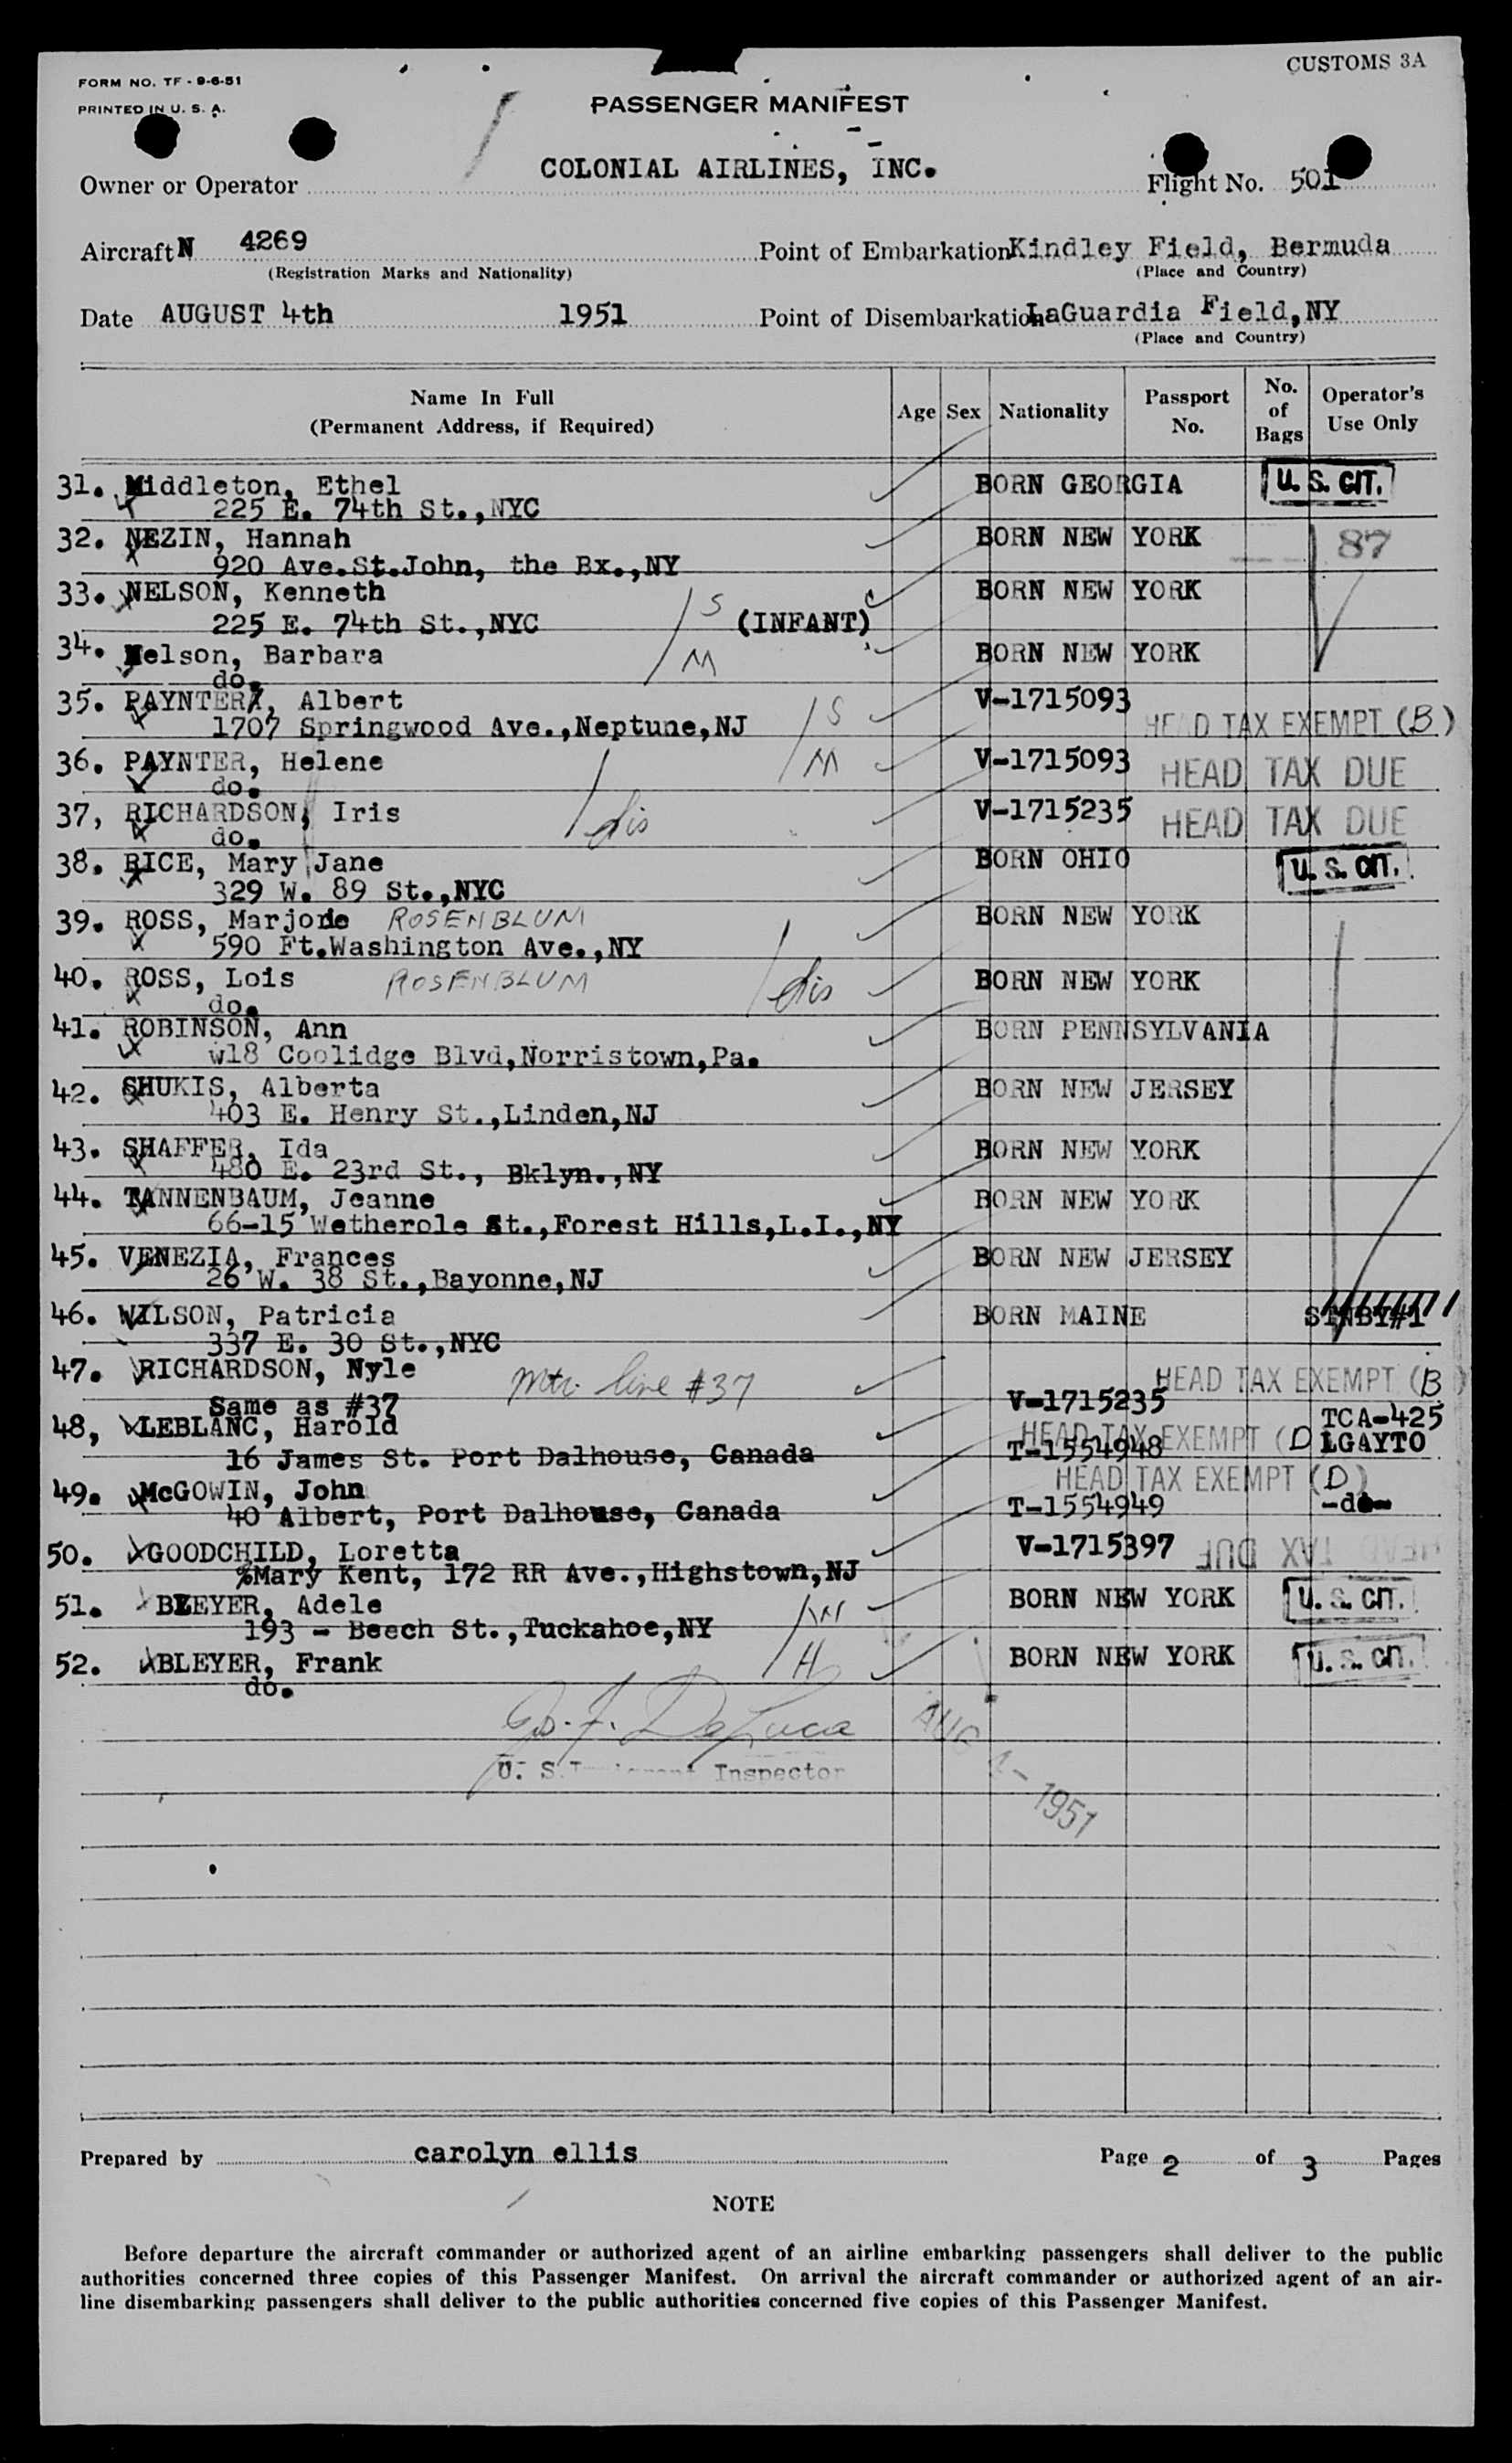 FORM NO. TF - 9-6-51
CUSTOMS 3A
PRINTED IN U. S. A.
PASSENGER MANIFEST
COLONIAL AIRLINES, INC.
Owner or Operator
Flight No. 501
Aircraft N 4269
Point of Embarkation Kindley Field, Bermuda
(Registration Marks and Nationality)
(Place and Country)
Date AUGUST 4th 1951
Point of Disembarkation LaGuardia Field, NY
(Place and Country)
Name In Full
(Permanent Address, if Required)
Age Sex Nationality Passport No. No. of Bags Operator's Use Only
31. Middleton, Ethel BORN GEORGIA U. S. CIT.
225 E. 74th St.,NYC
32. NEZIN, Hannah BORN NEW YORK 87
920 Ave.St.John, the Bx.,NY
33. NELSON, Kenneth BORN NEW YORK
225 E. 74th St.,NYC S (INFANT)
34. Nelson, Barbara M BORN NEW YORK
do.
35. PAYNTER, Albert S V-1715093
1707 Springwood Ave.,Neptune,NJ HEAD TAX EXEMPT (B)
36. PAYNTER, Helene M V-1715093 HEAD TAX DUE
do.
37, RICHARDSON, Iris V-1715235 HEAD TAX DUE
do. dis
38. RICE, Mary Jane BORN OHIO U. S. CIT.
329 W. 89 St.,NYC
39. ROSS, Marjorie ROSENBLUM BORN NEW YORK
590 Ft.Washington Ave.,NY
40. ROSS, Lois ROSENBLUM dis BORN NEW YORK
do.
41. ROBINSON, Ann BORN PENNSYLVANIA
w18 Coolidge Blvd,Norristown,Pa.
42. SHUKIS, Alberta BORN NEW JERSEY
403 E. Henry St.,Linden,NJ
43. SHAFFER, Ida BORN NEW YORK
480 E. 23rd St., Bklyn.,NY
44. TANNENBAUM, Jeanne BORN NEW YORK
66-15 Wetherole St.,Forest Hills,L.I.,NY
45. VENEZIA, Frances BORN NEW JERSEY
26 W. 38 St.,Bayonne,NJ
46. WILSON, Patricia BORN MAINE STNBY#1
337 E. 30 St.,NYC
47. RICHARDSON, Nyle mtr line #37 HEAD TAX EXEMPT (B)
Same as #37 V-1715235
48, LEBLANC, Harold HEAD TAX EXEMPT (D TCA-425
16 James St. Port Dalhouse, Canada T-1554948 LGAYTO
49. McGOWIN, John HEAD TAX EXEMPT (D)
40 Albert, Port Dalhouse, Canada T-1554949 -do-
50. GOODCHILD, Loretta V-1715397 HEAD TAX DUE
%Mary Kent, 172 RR Ave.,Highstown,NJ
51. BLEYER, Adele BORN NEW YORK U. S. CIT.
193 - Beech St.,Tuckahoe,NY
52. BLEYER, Frank H BORN NEW YORK U. S. CIT.
do.
DeLuca
U. S. Inspector
AUG 4 - 1951
Prepared by carolyn ellis
Page 2 of 3 Pages
NOTE
Before departure the aircraft commander or authorized agent of an airline embarking passengers shall deliver to the public
authorities concerned three copies of this Passenger Manifest. On arrival the aircraft commander or authorized agent of an air-
line disembarking passengers shall deliver to the public authorities concerned five copies of this Passenger Manifest.